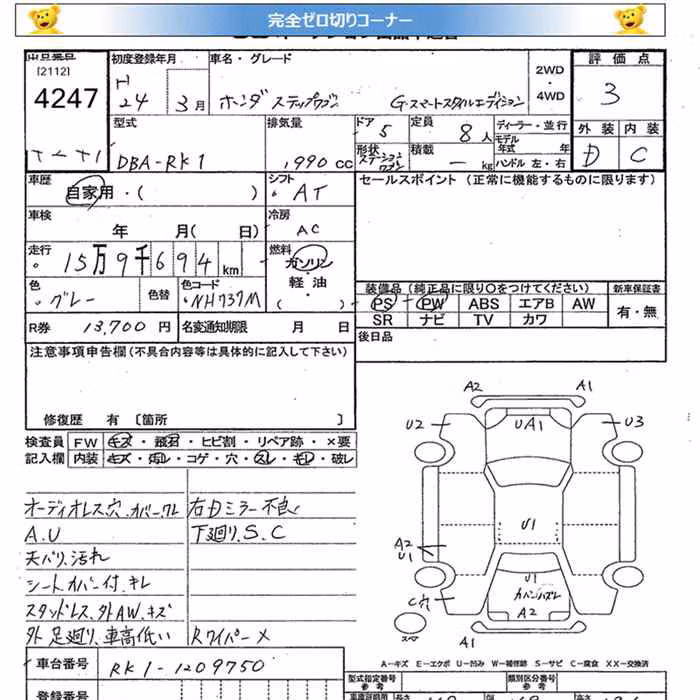 完全ゼロ切りコーナー
出品番号
[2112]
4247
初度登録年月
H
24 3月
車名・グレード
ホンダ ステップワゴン G・スマートスタイルエディション
2WD
・
4WD
評価点
3
型式
DBA-RK1
排気量
1990 cc
ドア
5
形状
ステーションワゴン
定員
8人
積載
- kg
ディーラー・並行
モデル年式 年
ハンドル 左・右
外装 内装
D C
車歴
自家用・( )
シフト
AT
セールスポイント (正常に機能するものに限ります)
車検
年 月( 日)
冷房
AC
走行
15万9千694km
燃料
ガソリン
・
軽油
( )
色
グレー
色替
色コード
NH737M
装備品(純正品に限り○をつけてください)
新車保証書
PS PW ABS エアB AW
SR ナビ TV カワ
有・無
R券 13,700円
名変通知期限 月 日
後日品
注意事項申告欄(不具合内容等は具体的に記入して下さい)
修復歴 有 〔箇所 〕
検査員 FW キズ・ ・ヒビ割・リペア跡・×要
記入欄 内装 キズ・汚れ・コゲ・穴・スレ・ ・破レ
オーディオレス穴.カバークレ
A.U
天バリ.汚れ
シートカバー付.キレ
スタッドレス.外AW.キズ
外足廻り.車高低い
右Dミラー不良
下廻り.S.C
Rワイパー×
A2 A1
U2 UA1 U3
U1
A2
U1
U1
A2
A1
スペア
A-キズ E-エクボ U-凹み W-補修跡 S-サビ C-腐食 XX-交換済
車台番号
RK1-1209750
登録番号
型式指定番号
参考
類別区分番号
参考